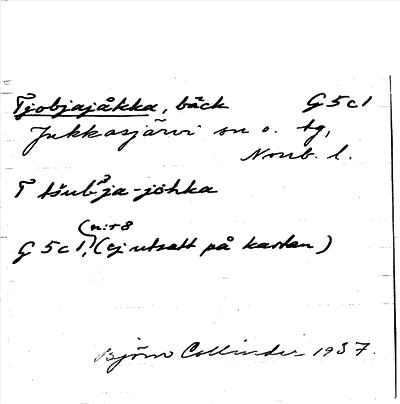 Tjobjajåkka, bäck G5c1
Jukkasjärvi sn o. tg,
Norrb. l.
T tšuƀ̄ja-jåhka
(n:r 8
G 5 c 1, (ej utsatt på kartan)
Björn Collinder 1937.